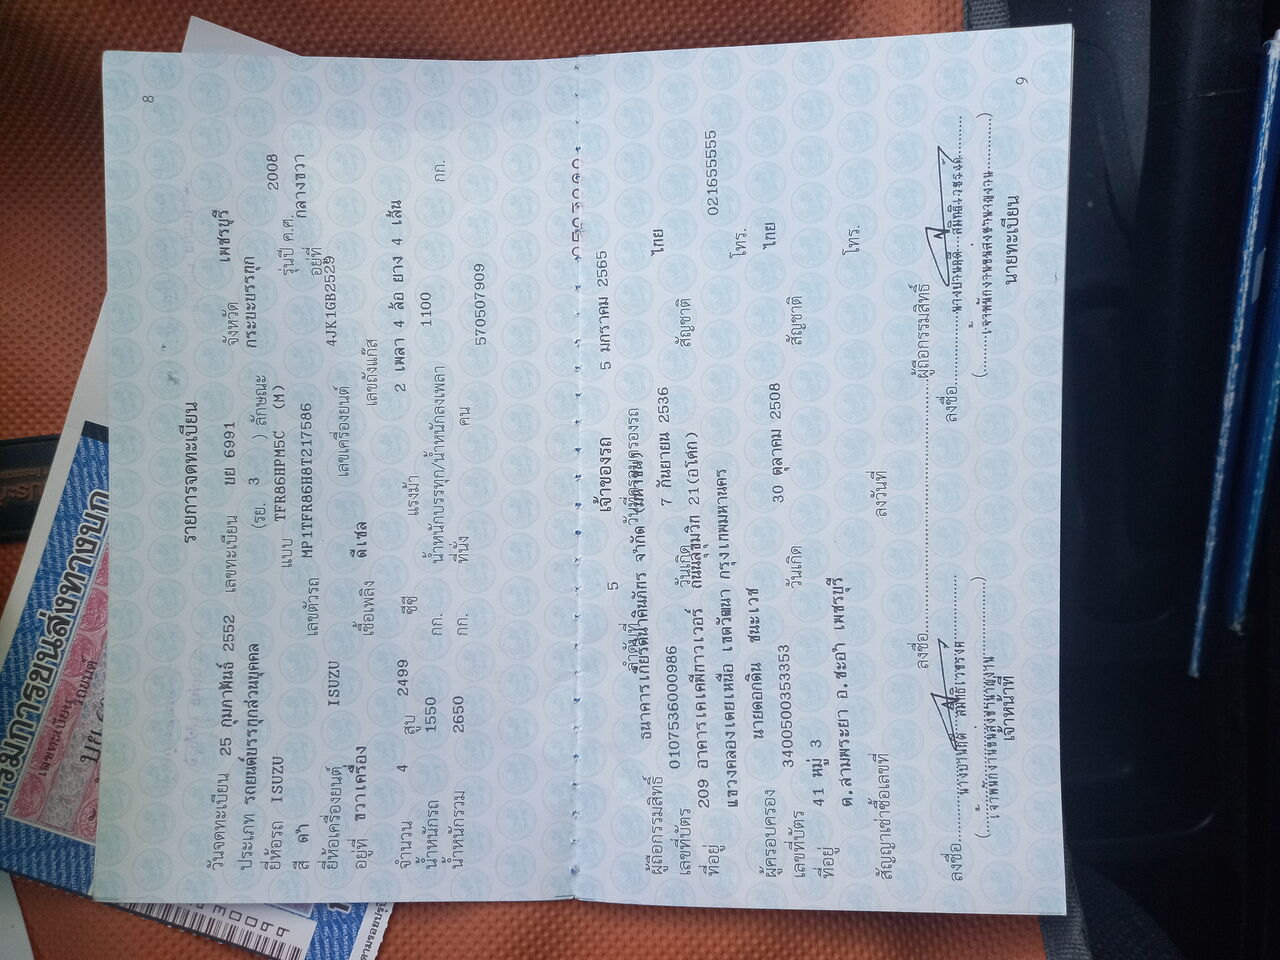 8
รายการจดทะเบียน
วันจดทะเบียน 25 กุมภาพันธ์ 2552 เลขทะเบียน ยย 6991 จังหวัด เพชรบุรี
ประเภท รถยนต์บรรทุกส่วนบุคคล (รย. 3 ) ลักษณะ กระบะบรรทุก
ยี่ห้อรถ ISUZU แบบ TFR86HPM5C (M) รุ่นปี ค.ศ. 2008
สี ดำ เลขตัวรถ MP1TFR86H8T217586 อยู่ที่ กลางขวา
ยี่ห้อเครื่องยนต์ ISUZU เลขเครื่องยนต์ 4JK1GB2529
อยู่ที่ ขวาเครื่อง เชื้อเพลิง ดีเซล เลขถังแก๊ส
จำนวน 4 สูบ 2499 ซีซี แรงม้า 2 เพลา 4 ล้อ ยาง 4 เส้น
น้ำหนักรถ 1550 กก. น้ำหนักบรรทุก/น้ำหนักลงเพลา 1100 กก.
น้ำหนักรวม 2650 กก. ที่นั่ง คน 570507909
เจ้าของรถ
ลำดับที่ 5 วันที่ครอบครองรถ 5 มกราคม 2565
ผู้ถือกรรมสิทธิ์ ธนาคารเกียรตินาคินภัทร จำกัด (มหาชน)
เลขที่บัตร 0107536000986 วันเกิด 7 กันยายน 2536 สัญชาติ ไทย
ที่อยู่ 209 อาคารเคเคพีทาวเวอร์ ถนนสุขุมวิท 21(อโศก)
แขวงคลองเตยเหนือ เขตวัฒนา กรุงเทพมหานคร โทร. 021655555
ผู้ครอบครอง นายดอกดิน ชนะเวช
เลขที่บัตร 3400500353353 วันเกิด 30 ตุลาคม 2508 สัญชาติ ไทย
ที่อยู่ 41 หมู่ 3
ต.สามพระยา อ.ชะอำ เพชรบุรี โทร.
สัญญาเช่าซื้อเลขที่ ลงวันที่
ลงชื่อ ผู้ถือกรรมสิทธิ์
ลงชื่อ ลงชื่อ
(เจ้าพนักงานขนส่งชำนาญงาน) (เจ้าพนักงานขนส่งชำนาญงาน)
เจ้าหน้าที่ นายทะเบียน
9
กรมการขนส่งทางบก
เลขทะเบียน รถยนต์